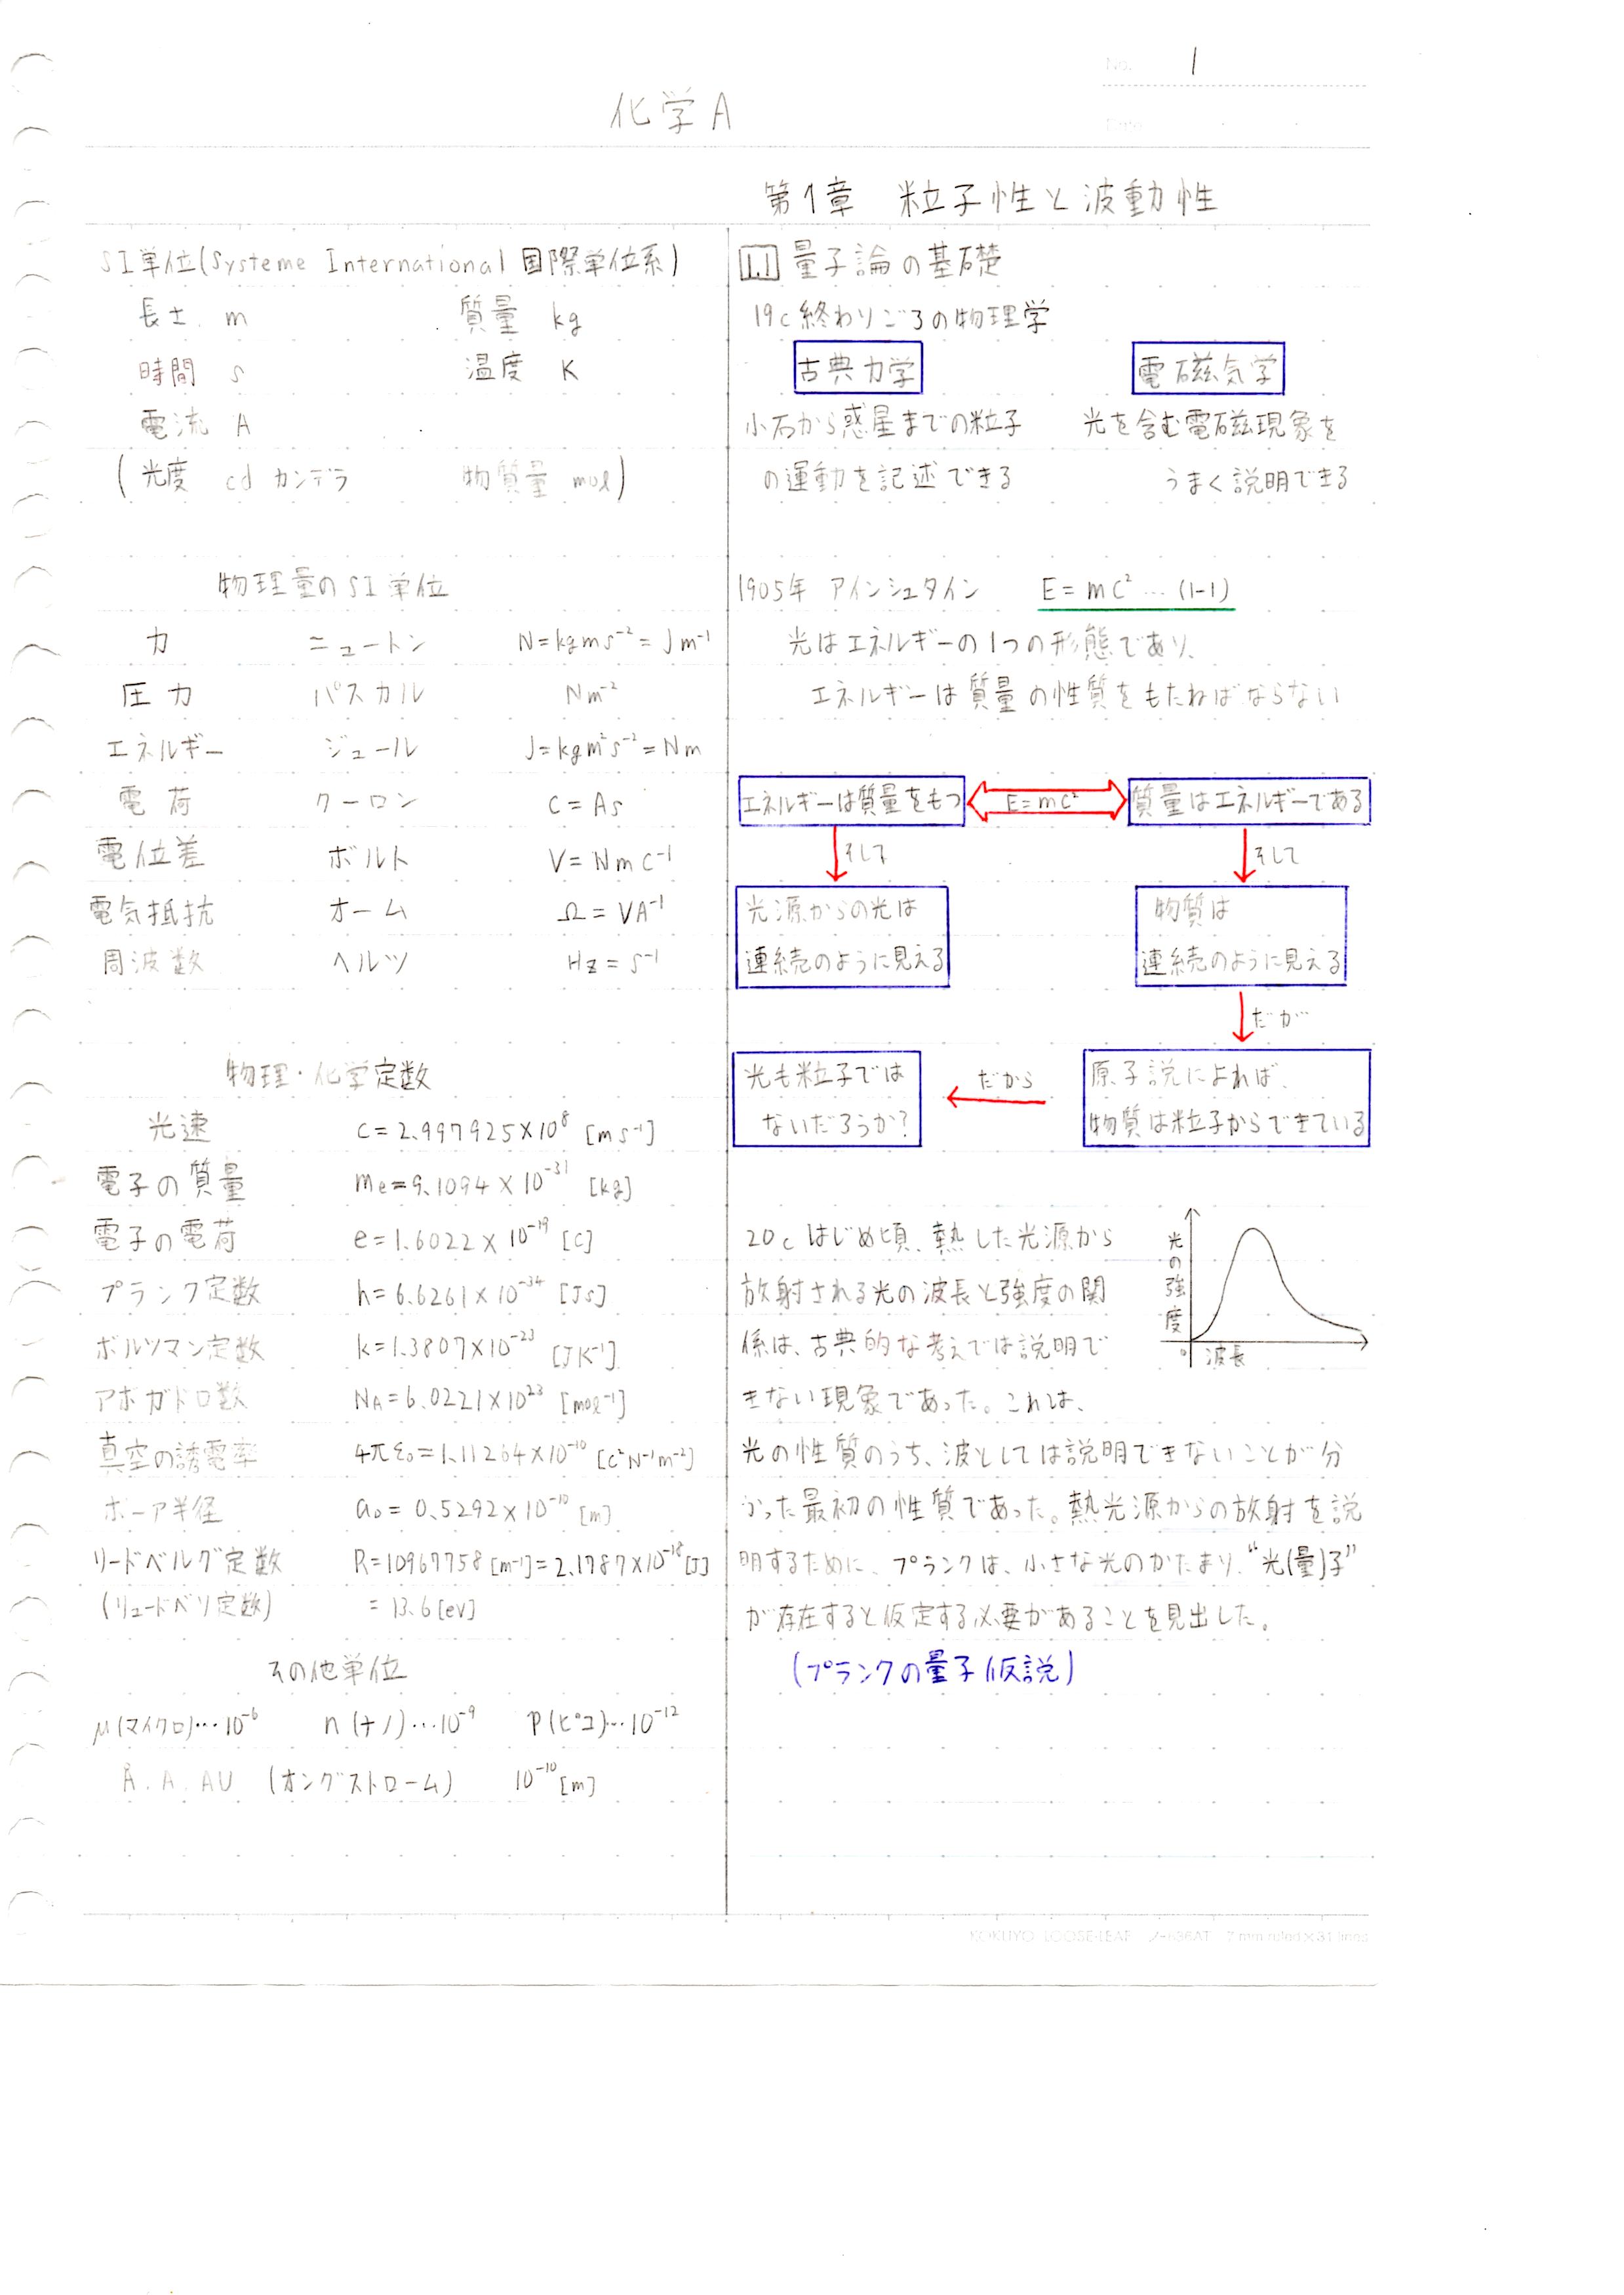 No. 1
化学A
Date
第1章 粒子性と波動性
SI単位(Systeme International 国際単位系)
長さ m 質量 kg
時間 s 温度 K
電流 A
(光度 cd カンデラ 物質量 mol)
物理量のSI単位
力 ニュートン N=kgms⁻²=Jm⁻¹
圧力 パスカル Nm⁻²
エネルギー ジュール J=kgm²s⁻²=Nm
電荷 クーロン C=As
電位差 ボルト V=NmC⁻¹
電気抵抗 オーム Ω=VA⁻¹
周波数 ヘルツ Hz=s⁻¹
物理・化学定数
光速 c=2.997925×10⁸ [ms⁻¹]
電子の質量 me=9.1094×10⁻³¹ [kg]
電子の電荷 e=1.6022×10⁻¹⁹ [C]
プランク定数 h=6.6261×10⁻³⁴ [Js]
ボルツマン定数 k=1.3807×10⁻²³ [JK⁻¹]
アボガドロ数 NA=6.0221×10²³ [mol⁻¹]
真空の誘電率 4πε₀=1.11264×10⁻¹⁰ [C²N⁻¹m⁻²]
ボーア半径 a₀=0.5292×10⁻¹⁰ [m]
リードベルグ定数 R=10967758[m⁻¹]=2.1787×10⁻¹⁸[J]
(リュードベリ定数) =13.6[eV]
その他単位
μ(マイクロ)…10⁻⁶ n(ナノ)…10⁻⁹ p(ピコ)…10⁻¹²
Å. A. AU (オングストローム) 10⁻¹⁰[m]
1.1 量子論の基礎
19c終わりごろの物理学
古典力学 電磁気学
小石から惑星までの粒子 光を含む電磁現象を
の運動を記述できる うまく説明できる
1905年 アインシュタイン E=mc² …(1-1)
光はエネルギーの1つの形態であり、
エネルギーは質量の性質をもたねばならない
エネルギーは質量をもつ E=mc² 質量はエネルギーである
そして そして
光源からの光は 物質は
連続のように見える 連続のように見える
だが
光も粒子では だから 原子説によれば、
ないだろうか? 物質は粒子からできている
20cはじめ頃、熱した光源から
放射される光の波長と強度の関
係は、古典的な考えでは説明で
きない現象であった。これは、
光の強度
0 波長
光の性質のうち、波としては説明できないことが分
かった最初の性質であった。熱光源からの放射を説
明するために、プランクは、小さな光のかたまり、“光(量)子”
が存在すると仮定する必要があることを見出した。
(プランクの量子仮説)
KOKUYO LOOSE-LEAF ノ-836AT 7 mm ruled×31 lines